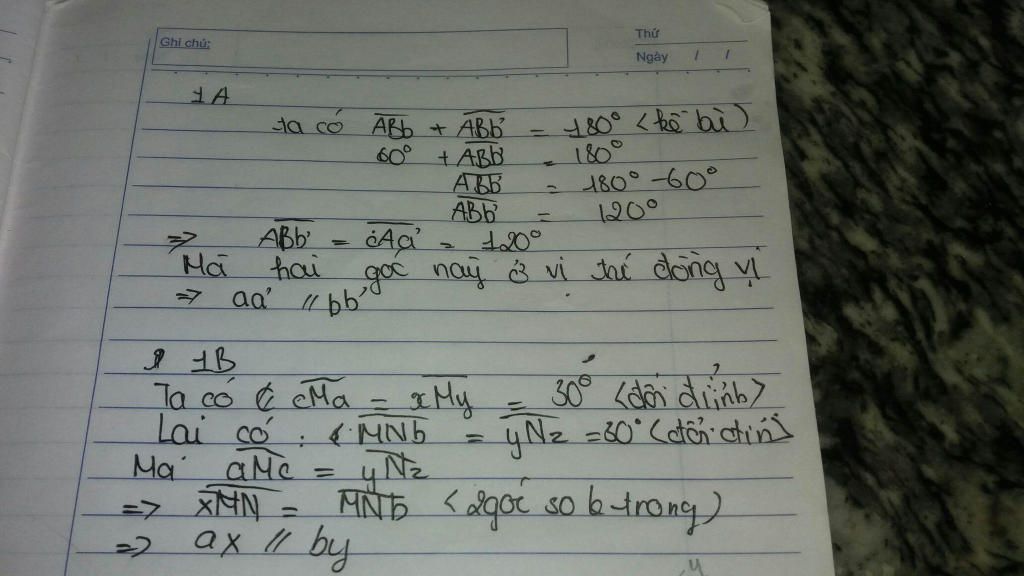 Ghi chú:
Thứ
Ngày / /
1A
Ta có ABb + ABb' = 180° (kề bù)
60° + ABb' = 180°
ABb' = 180° - 60°
ABb' = 120°
=> ABb' = cAa' = 120°
Mà hai góc này ở vị trí đồng vị
=> aa' // bb'
1B
Ta có cMa = xMy = 30° (đối đỉnh)
Lại có : MNb = yNz = 30° (đối đỉn)
Mà aMc = yNz
=> xMN = MNb (2góc so le trong)
=> ax // by